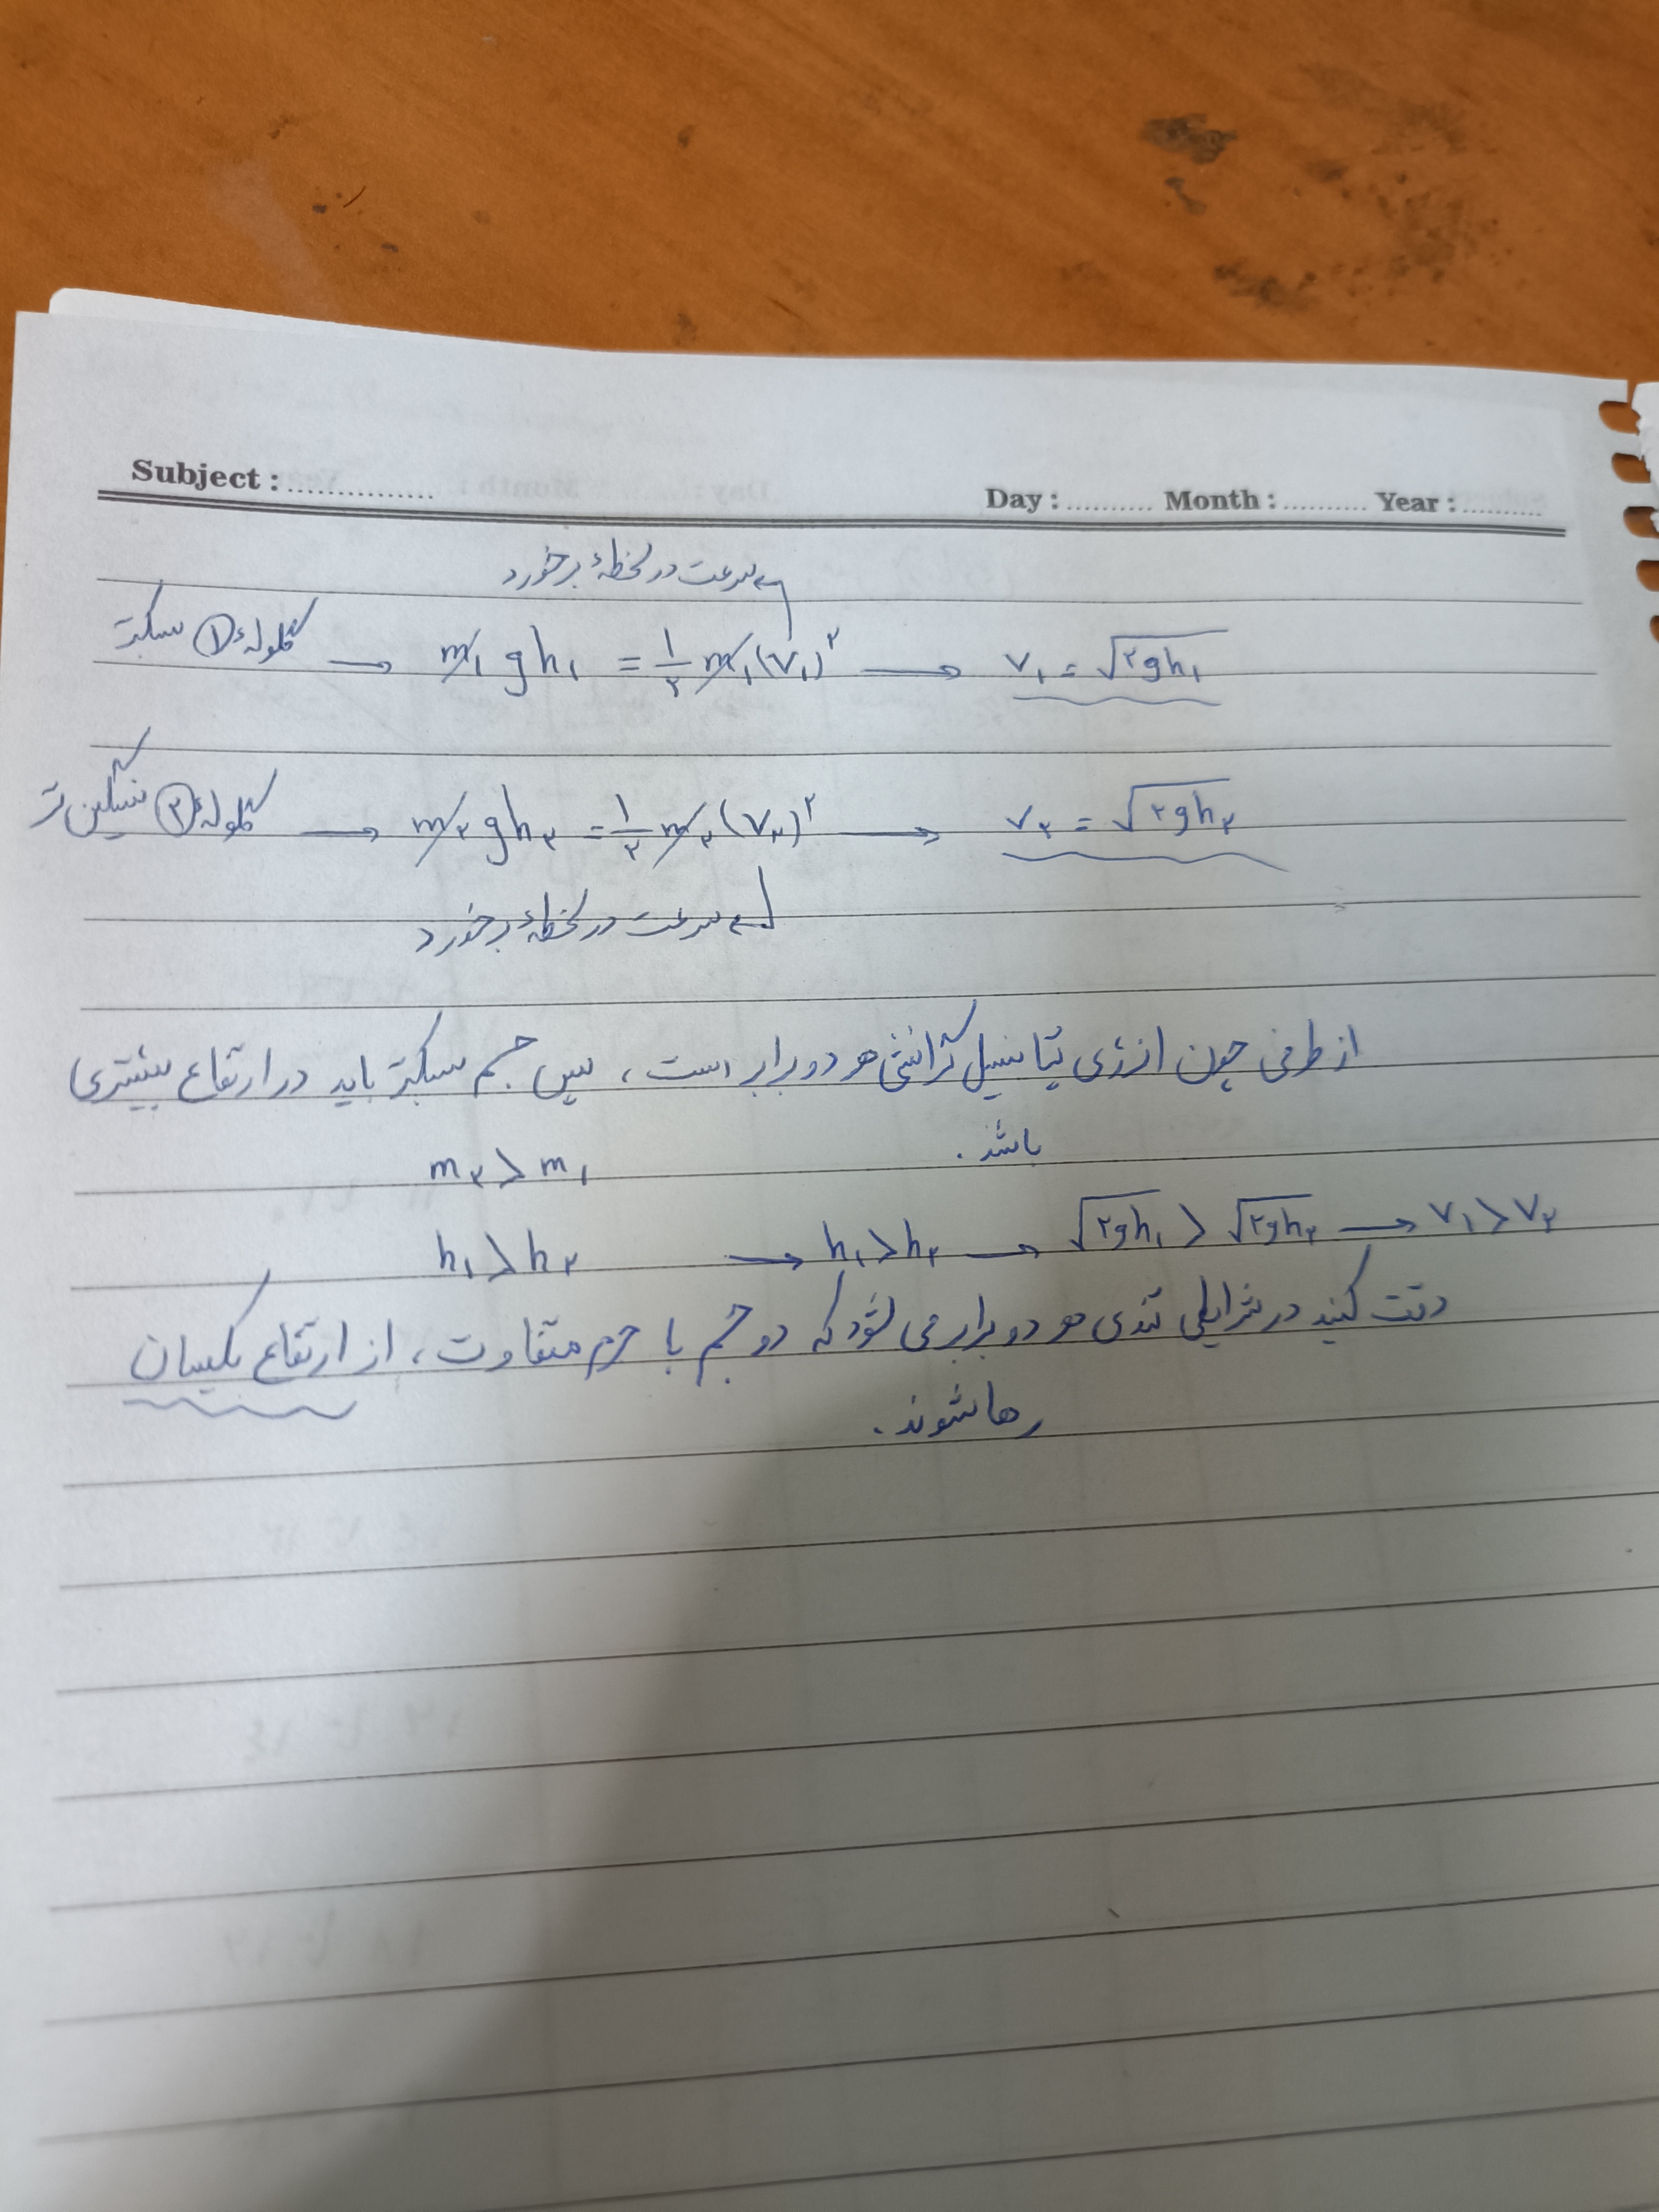 Subject : ................ Day : .......... Month : .......... Year : ..........
سرعت در لحظهٔ برخورد
گلولهٔ ① سبکتر → m₁gh₁ = ۱/۲ m₁(v₁)^۲ → v₁ = √۲gh₁
گلولهٔ ② سنگین تر → m₂gh₂ = ۱/۲ m₂(v₂)^۲ → v₂ = √۲gh₂
سرعت در لحظهٔ برخورد
از طرفی چون انرژی پتانسیل گرانشی هر دو برابر است، پس جسم سبکتر باید در ارتفاع بیشتری
باشد.
m₂ > m₁
h₁ > h₂ → h₁ > h₂ → √۲gh₁ > √۲gh₂ → v₁ > v₂
دقت کنید در شرایطی تندی هر دو برابر می شود که دو جسم با جرم متفاوت، از ارتفاع یکسان
رها شوند.